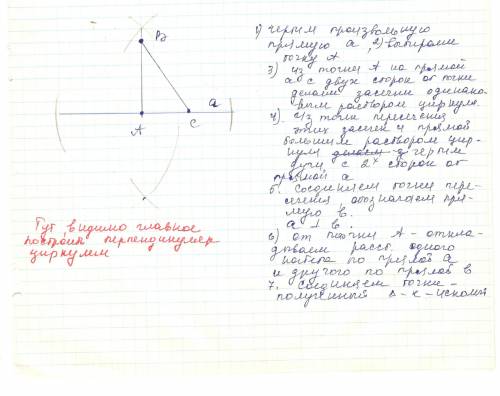 В
а
А
С
Тут видимо главное
построить перпендикуляр
циркулем
1) чертим произвольную
прямую а, 2) выбираем
точку А
3) из точки А на прямой
а с двух сторон от точки
делаем засечки одинако-
вым раствором циркуля.
4) из точек пересечения
этих засечек и прямой
большим раствором цир-
куля делаем з чертим
дуги с 2х сторон от
прямой а
5. Соединяем точки пере-
сечения, обозначаем пря-
мую в.
а ⊥ в.
6) от точки А - откла-
дываем расст. одного
катета по прямой а
и другого по прямой в
7. Соединяем точки -
полученный Δ-к - искомый